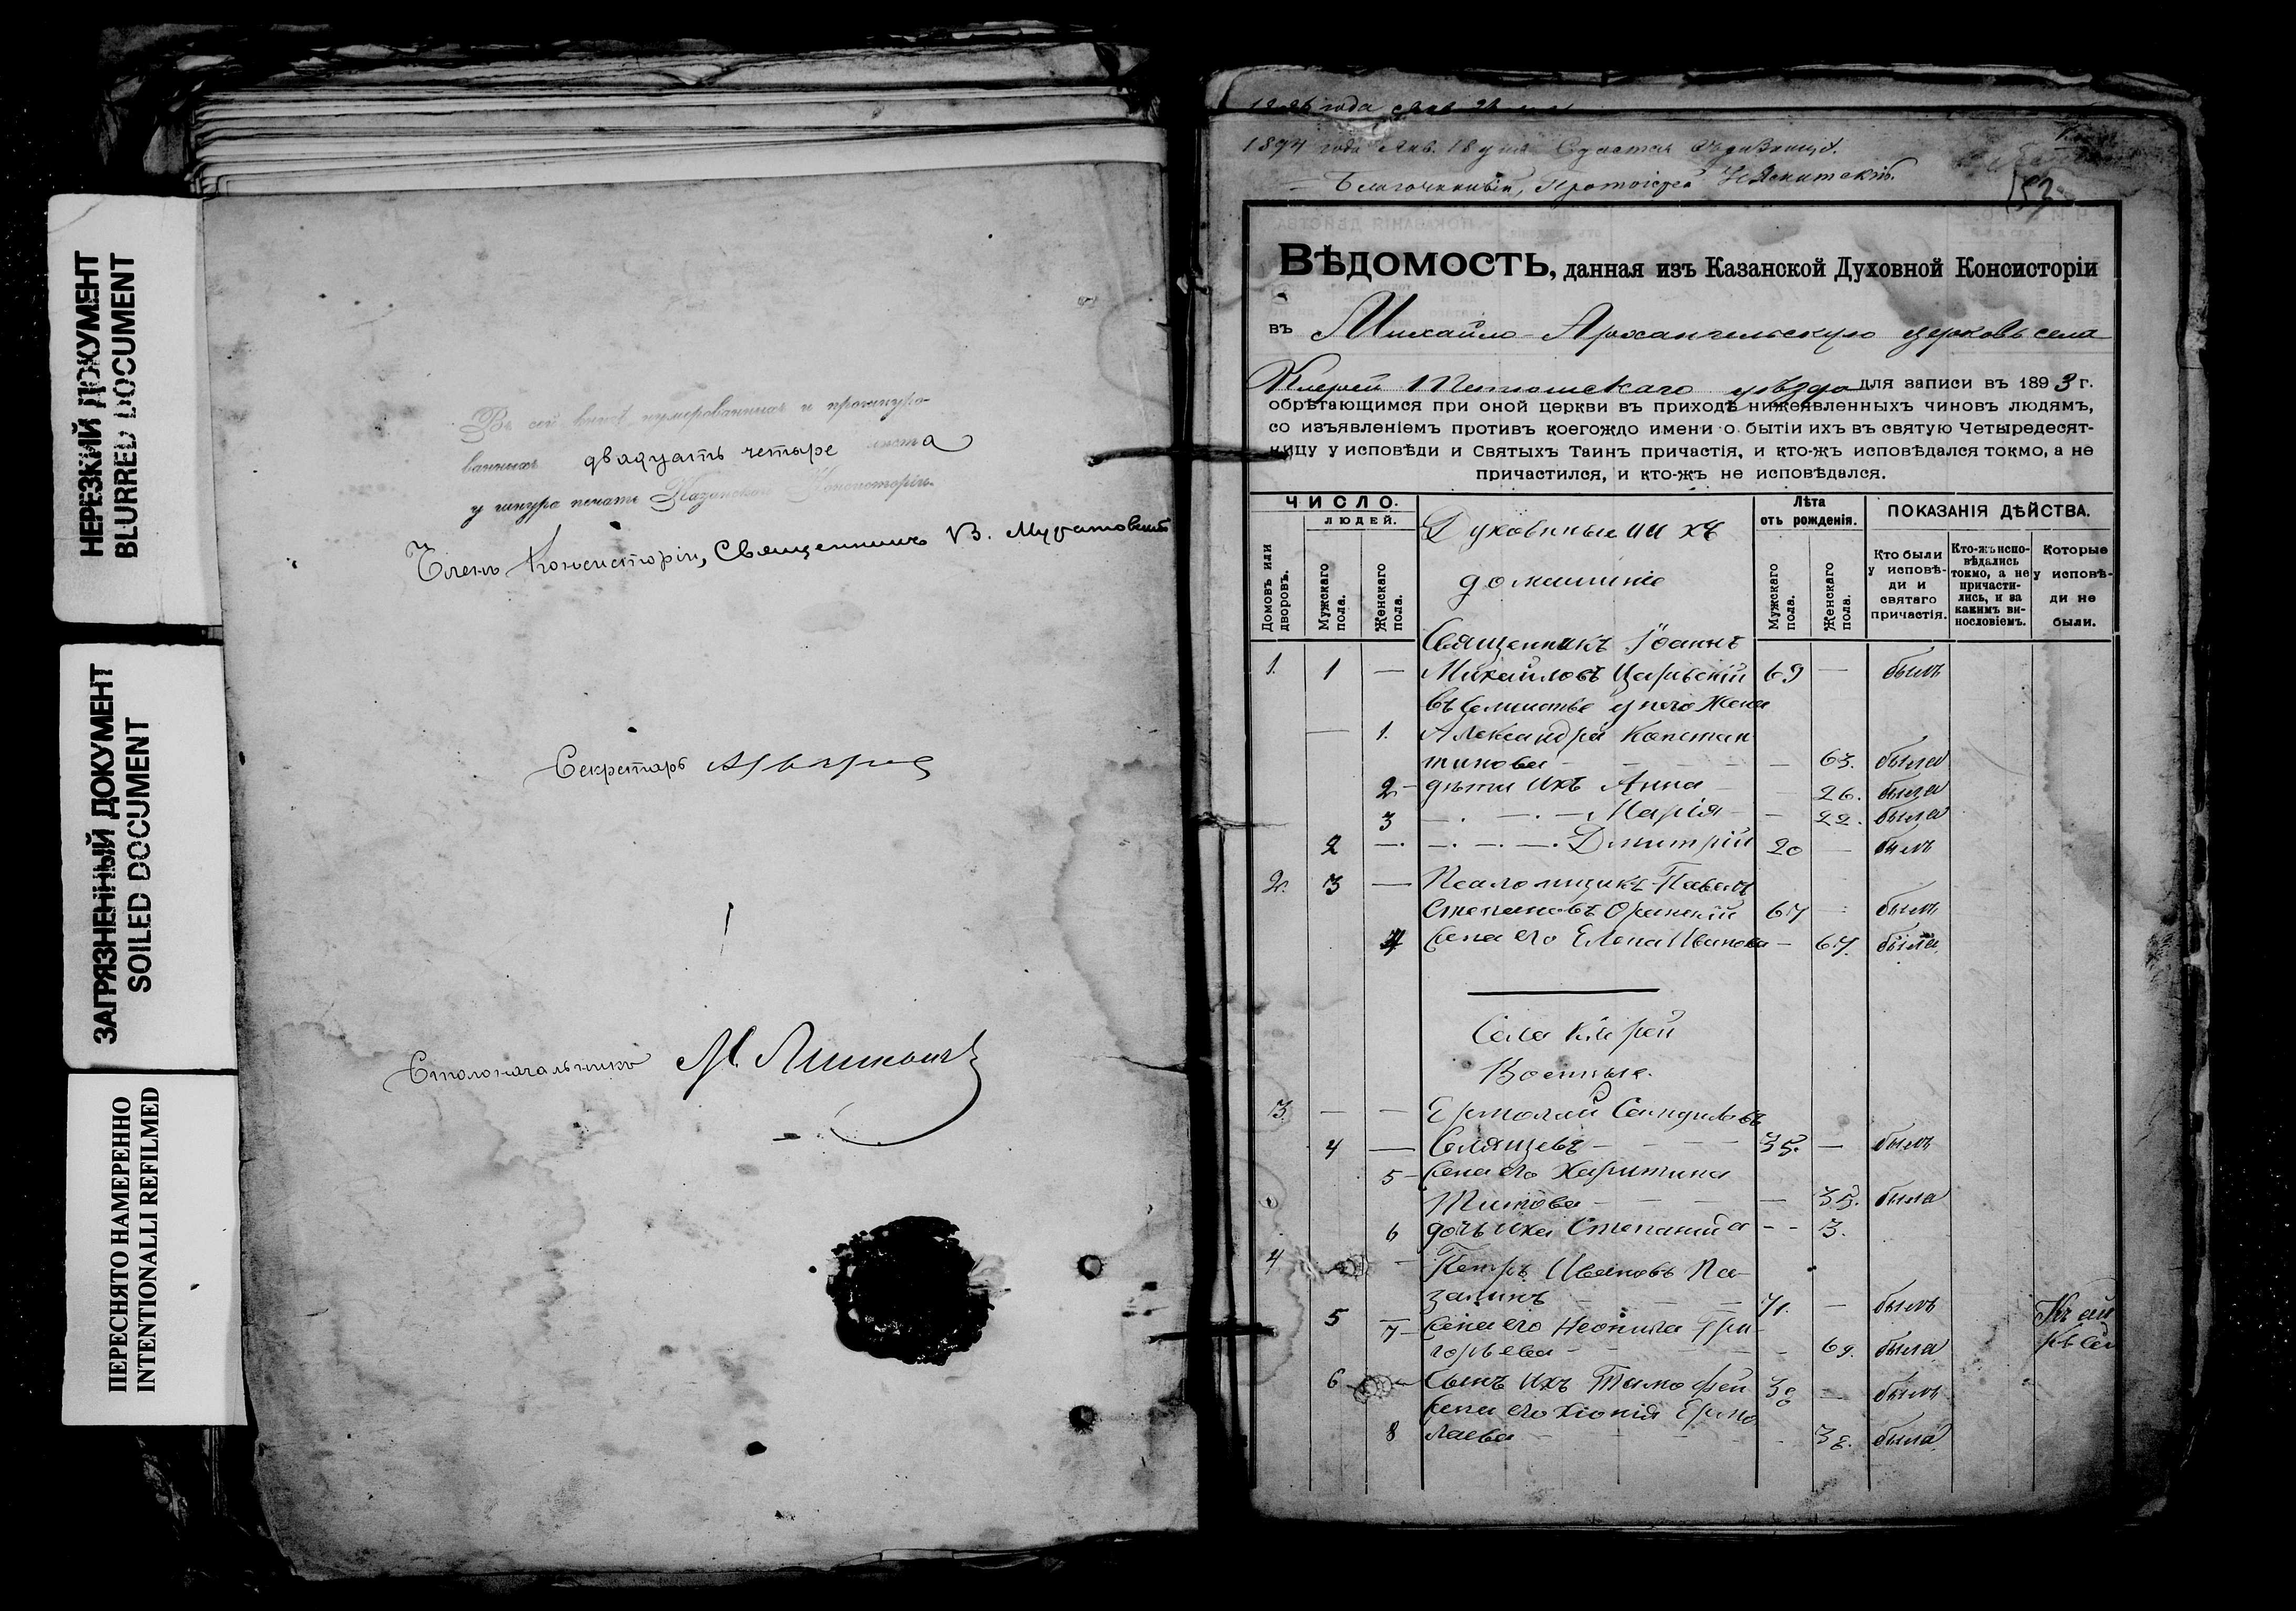 НЕРЕЗКИЙ ДОКУМЕНТ
BLURRED DOCUMENT
ЗАГРЯЗНЕННЫЙ ДОКУМЕНТ
SOILED DOCUMENT
ПЕРЕСНЯТО НАМЕРЕННО
INTENTIONALLI REFILMED
Въ сей книгѣ нумерованныхъ и прошнуро-
ванныхъ двадцать четыре листа
у шнура печать Казанской Консисторіи.
Членъ Консисторіи, Священникъ В.
Секретарь
Столоначальникъ
1894 года Янв. 18 дня
Благочинный, Протоіерей
ВѢДОМОСТЬ, данная изъ Казанской Духовной Консисторіи
въ Михайло-Архангельскую церковь села
Кирей Тетюшскаго уѣзда для записи въ 1893 г.
обрѣтающимся при оной церкви въ приходѣ нижеявленныхъ чиновъ людямъ,
со изъявленіемъ противъ коегождо имени о бытіи ихъ въ святую Четыредесят-
ницу у исповѣди и Святыхъ Таинъ причастія, и кто-жъ исповѣдался токмо, а не
причастился, и кто-жъ не исповѣдался.
ЧИСЛО.
ЛЮДЕЙ.
Домовъ или дворовъ.
Мужскаго пола.
Женскаго пола.
Духовные и ихъ
домашніе
Лѣта отъ рожденія.
Мужскаго пола.
Женскаго пола.
ПОКАЗАНІЯ ДѢЙСТВА.
Кто были у исповѣ-ди и святаго причастія.
Кто-жъ испо-вѣдались токмо, а не причасти-лись, и за какимъ ви-нословіемъ.
Которые у исповѣ-ди не были.
Священникъ Іоаннъ
1. 1 — Михайловъ Царевскій 69 — былъ
въ семействе у него жена
— 1. Александра Констан
тинова — 63. была
2 дѣти ихъ Анна — 26. была
3 — Марія — 22. была
2 — Димитрій 20 — былъ
2. 3 — Псаломщикъ Павелъ
Степановъ 67 — былъ
4 жена его Елена Иванова — 67. была
Села Кирей
Военные.
3. — — Ермолай
4 — 35. — былъ
5 жена его Харитина
Титова — 35. была
6 дочь ихъ Степанида — 3.
4 — Петръ Ивановъ Ла-
5 71. — былъ
7 жена его Неонила Гри-
горьева — 69. была
6 — Сынъ ихъ Тимофей 38 — былъ
жена его Хіонія Ермо
8 лаева — 38. была